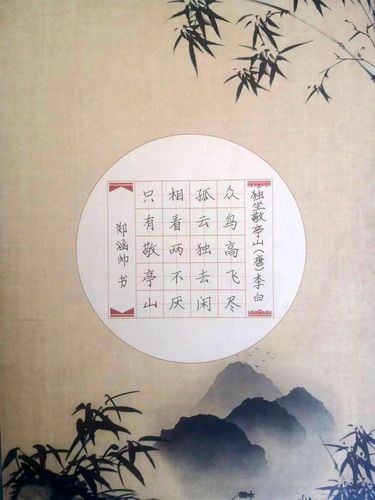 独坐敬亭山(唐)李白
众鸟高飞尽
孤云独去闲
相看两不厌
只有敬亭山
郑涵帅书